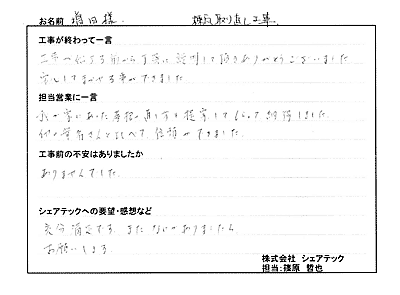 お名前 増田様. 棟瓦取り直し工事.
工事が終わって一言
工事の始まる前から丁寧に説明して頂きありがとうございました
安心してまかせる事ができました.
担当営業に一言
私の家にあった屋根の直し方を提案してもらって納得しました.
他の業者さんと比べて、信頼ができました.
工事前の不安はありましたか
ありませんでした.
シェアテックへの要望・感想など
充分満足です. また なにかありましたら
お願いします.
株式会社 シェアテック
担当:篠原 哲也